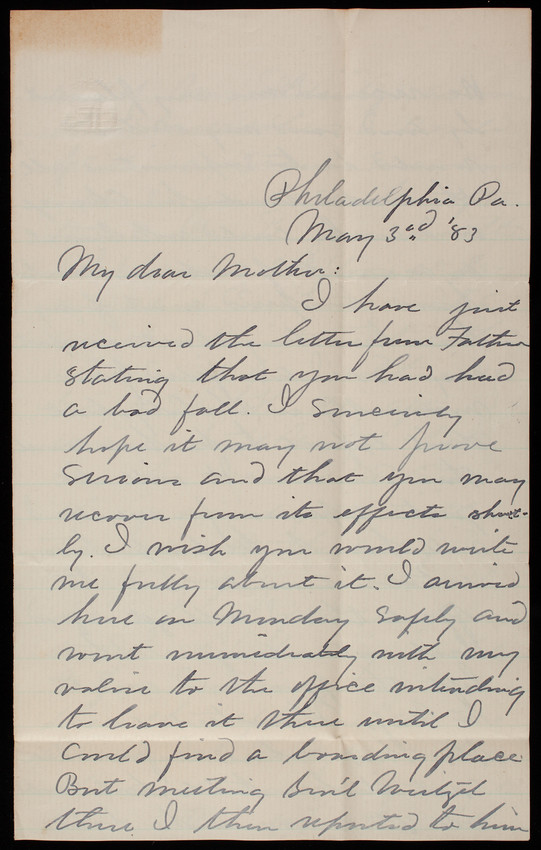 Philadelphia Pa.
May 3rd '83
My dear Mother:
I have just
received the letter from Father
stating that you had had
a bad fall. I sincerely
hope it may not prove
serious and that you may
recover from its effects short-
ly. I wish you would write
me fully about it. I arrived
here on Monday safely and
went immediately with my
valise to the office intending
to leave it there until I
could find a boarding place
But meeting Gen'l Weitzel
there I then reported to him